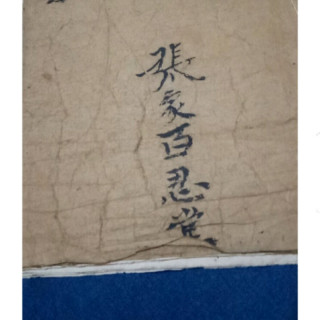 張家百忍堂